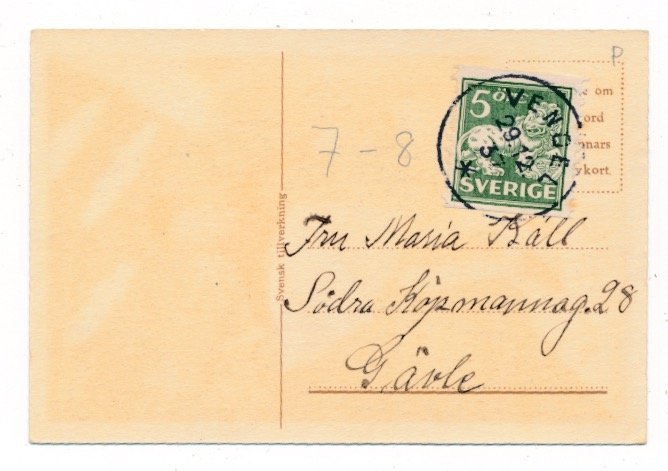 P
5 ÖRE
SVERIGE
VENGE
29 12
3
*
e om
ord
nnars
ykort.
7 - 8
Svensk tillverkning
Fru Maria Käll
Södra Köpmannag. 28
Gävle